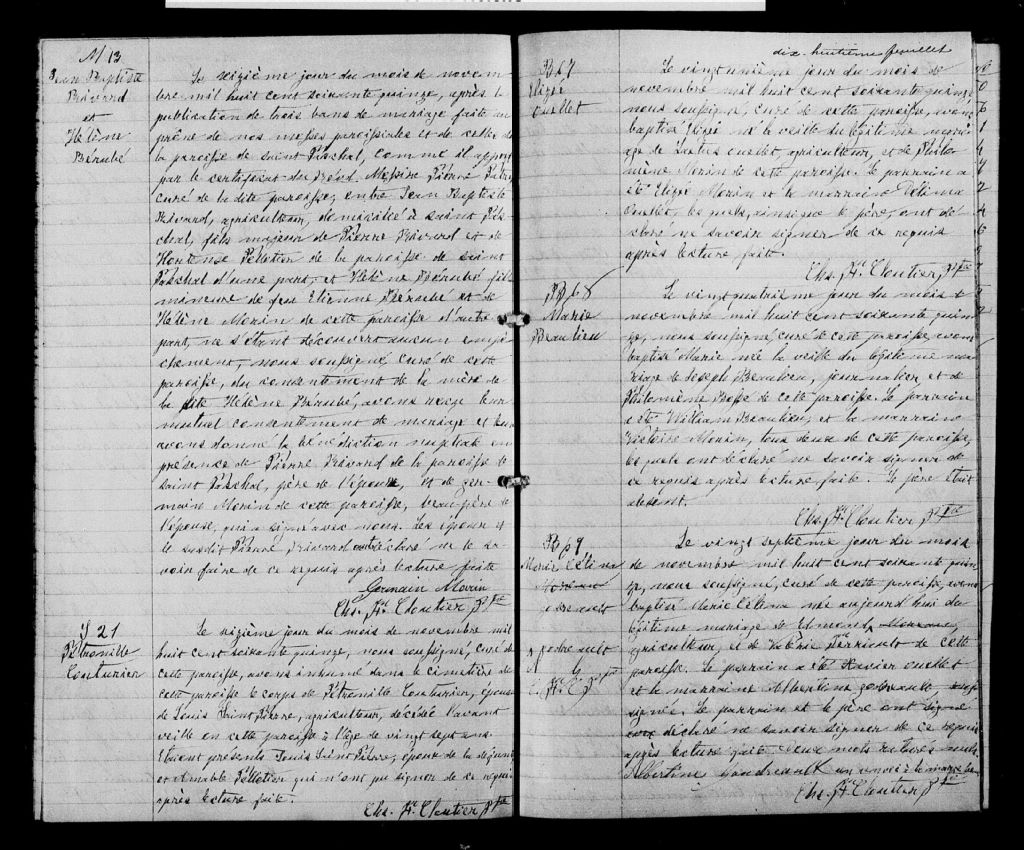 M 13
Jean Baptiste
Rivard
et
Hélène
Bérubé
Le seizième jour du mois de novem
bre mil huit cent soixante quinze, après la
publication de trois bans de mariage faite au
prône de nos messes paroissiales et de celles de
la paroisse de saint Paschal, comme il appert
par le certificat du Révd. Messire Pierre
curé de la dite paroisse, entre Jean Baptiste
Rivard, agriculteur, domicilié à saint Pas
chal, fils majeur de Pierre Rivard et de
Hortense Pelletier de la paroisse de saint
Paschal d'une part, et Hélène Bérubé fille
mineure de feu Etienne Bérubé et de
Hélène Morin de cette paroisse d'autre
part, ne s'étant découvert aucun empê
chement, nous soussigné, curé de cette
paroisse, du consentement de la mère de
la dite Hélène Bérubé, avons reçu leur
mutuel consentement de mariage et leur
avons donné la bénédiction nuptiale en
présence de Pierre Rivard de la paroisse de
saint Paschal, père de l'époux, et de Ger-
main Morin de cette paroisse, beau-père de
l'épouse, qui a signé avec nous. Les époux et
le susdit Pierre Rivard ont déclaré ne le sa-
voir faire de ce requis après lecture faite
Germain Morin
Chs. F. Cloutier Ptre
S 21
Pétronille
Couturier
Le seizième jour du mois de novembre mil
huit cent soixante quinze, nous soussigné, curé de
cette paroisse, avons inhumé dans le cimetière de
cette paroisse le corps de Pétronille Couturier, épouse
de Louis Saint Pierre, agriculteur, décédée l'avant
veille en cette paroisse à l'âge de vingt sept ans.
Etaient présents Louis Saint Pierre, époux de la défunte
et Aimable Pelletier qui n'ont pu signer de ce requis
après lecture faite.
Chs. F. Cloutier Ptre
dix-huitième feuillet
B 67
Elzée
Ouellet
Le vingt unième jour du mois de
novembre mil huit cent soixante quinze
nous soussigné, curé de cette paroisse, avons
baptisé Elzée né la veille du légitime maria
ge de Ouellet, agriculteur, et de Philo
mène Morin de cette paroisse. Le parrain a
été Elzée Morin et la marraine Délima
Ouellet, lesquels, ainsi que le père, ont dé
claré ne savoir signer de ce requis
après lecture faite.
Chs. F. Cloutier, Ptre
B 68
Marie
Beaulieu
Le vingt quatrième jour du mois de
novembre mil huit cent soixante quin
ze, nous soussigné, curé de cette paroisse, avons
baptisé Marie née la veille du légitime ma
riage de Joseph Beaulieu, journalier, et de
Philomène de cette paroisse. Le parrain
a été William Beaulieu, et la marraine
Victoire Morin, tous deux de cette paroisse,
lesquels ont déclaré ne savoir signer de
ce requis après lecture faite. Le père était
absent.
Chs. F. Cloutier Ptre
B 69
Marie Célina
Le vingt septième jour du mois
de novembre mil huit cent soixante quin
ze, nous soussigné, curé de cette paroisse, avons
baptisé Marie Célina née aujourd'hui du
légitime mariage de
agriculteur, et de Valérie de cette
paroisse. Le parrain a été Xavier Ouellet
et la marraine Albertine
signée. Le parrain et le père ont
déclaré ne savoir signer de ce requis
après lecture faite. Deux mots raturés nuls
Albertine Gaudreault un renvoi à la marge bon
Chs. F. Cloutier Ptre